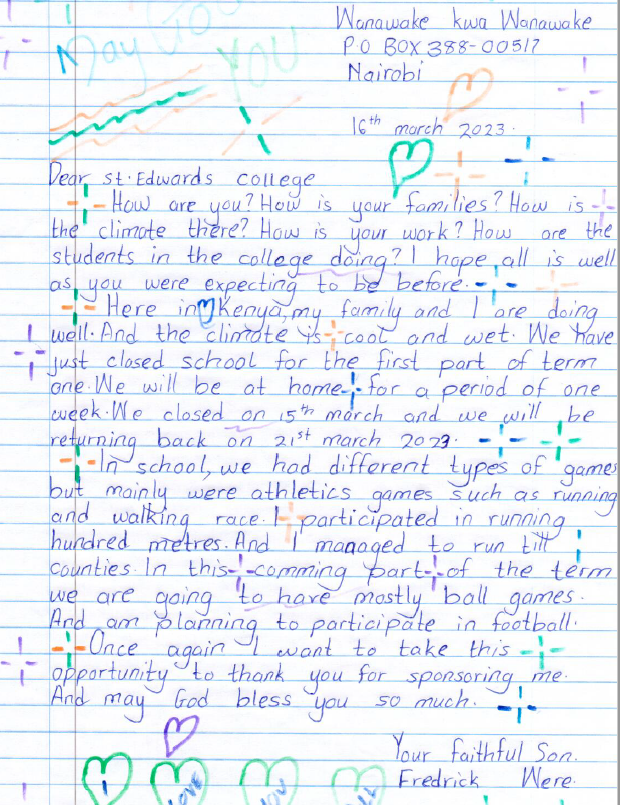 May God
YOU
Wanawake kwa Wanawake
P O BOX 388-00517
Nairobi
16th march 2023.
Dear st. Edwards college
How are you? How is your families? How is
the climate there? How is your work? How are the
students in the college doing? I hope all is well
as you were expecting to be before.
Here in Kenya, my family and I are doing
well. And the climate is cool and wet. We have
just closed school for the first part of term
one. We will be at home for a period of one
week. We closed on 15th march and we will be
returning back on 21st march 2023.
In school, we had different types of games
but mainly were athletics games such as running
and walking race. I participated in running
hundred metres. And I managed to run till
counties. In this comming part of the term
we are going to have mostly ball games.
And am planning to participate in football.
Once again I want to take this
opportunity to thank you for sponsoring me.
And may God bless you so much.
Your faithful Son.
Fredrick Were.
I LOVE YOU ALL